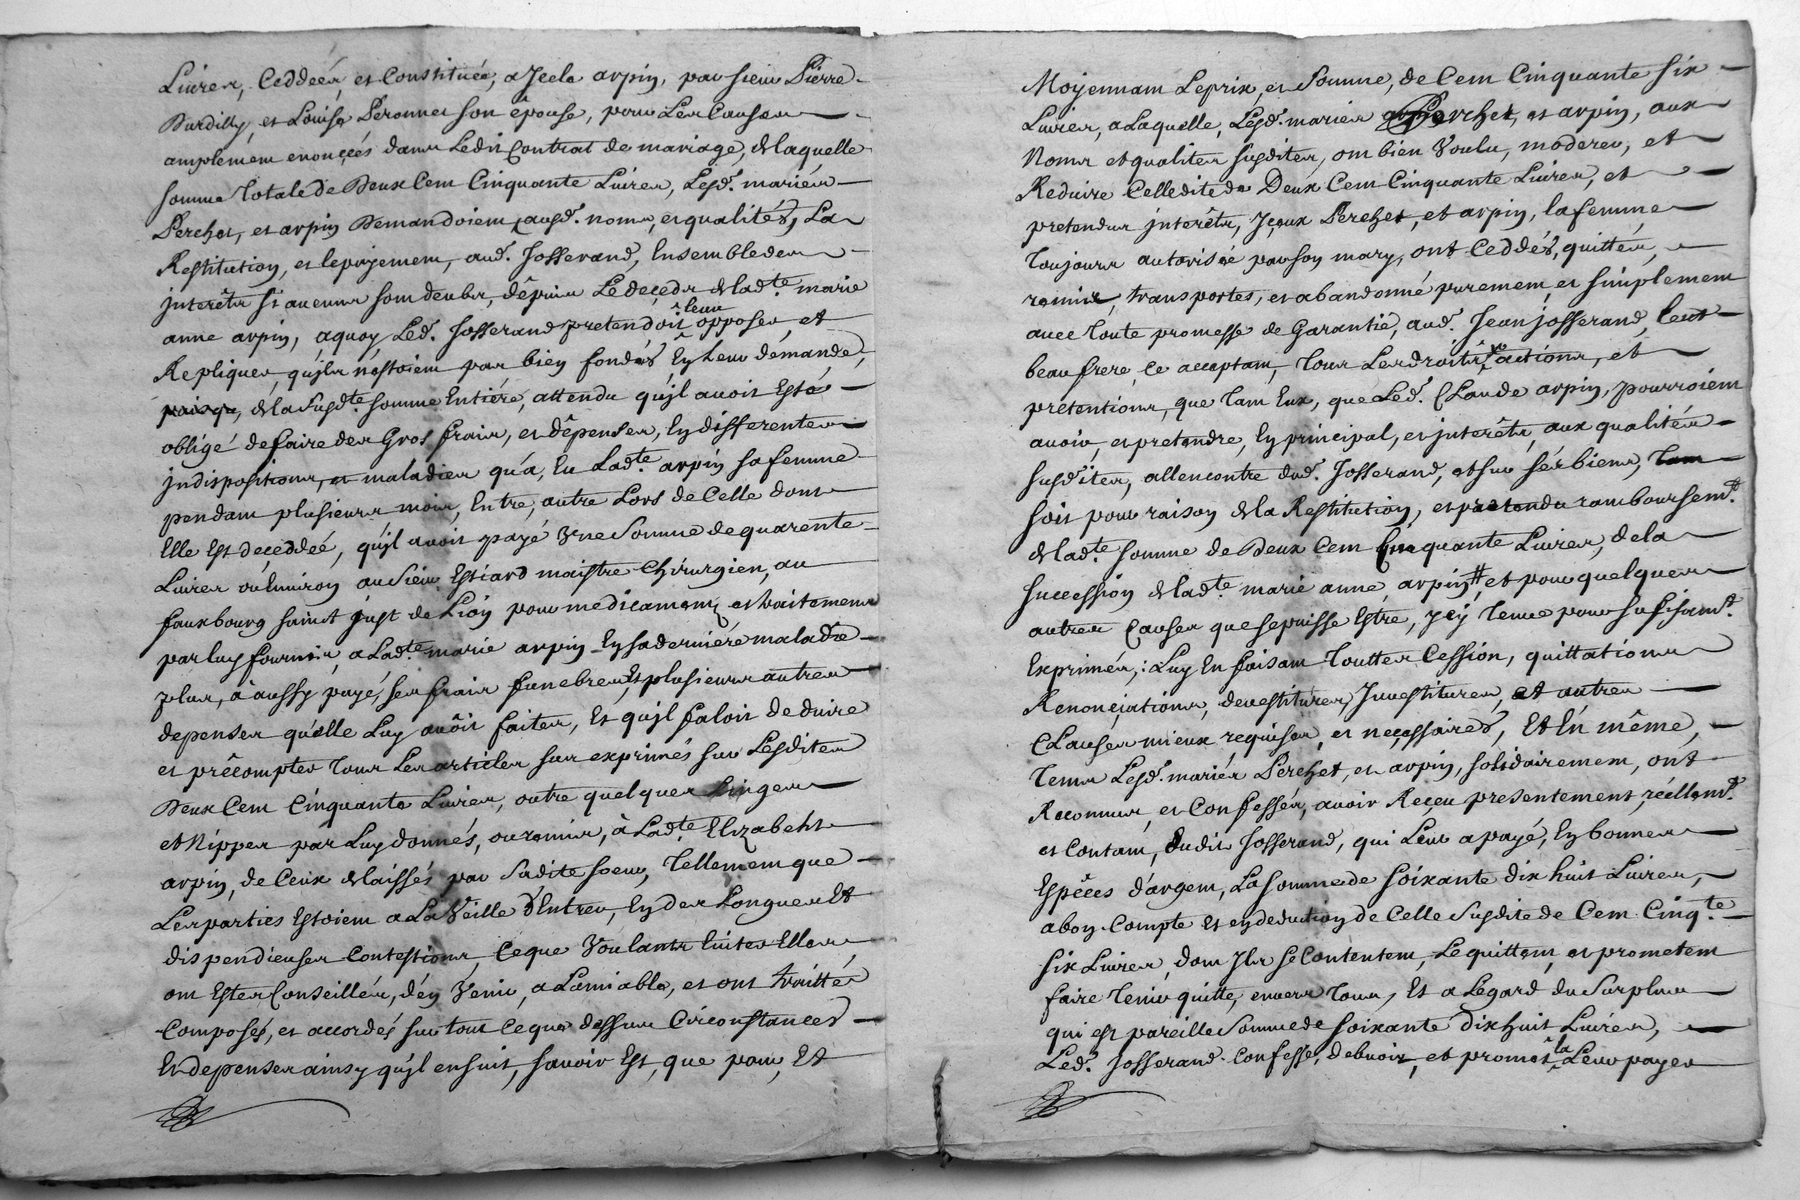 Livres, Ceddeés, et Constituée, a Jcelle arpin, par sieur Pierre
Durdilly, et Louise Peronnet son épouse, pour Les Causes
amplement enoncées dans Ledit Contrat de mariage, de laquelle
somme Totale de Deux Cent Cinquante Livres, Lesd. mariés
Perchet, et arpin Demandoient, ausd. noms, et qualités, La
Restitution, et le payement, aud. Josserand, Ensemble des
interêts si aucuns sont deubs, dêpuis Le deçeds de lad.te marie
anne arpin, aquoy Led. Josserand pretendoit leur opposer, et
Repliquer, qu'jls n'estoient pas bien fondés En Leur demande,
de la Susd.te somme Entiére, attendu qu'jl avoit Esté
obligé de faire des Gros frais, et dêpenses, En differentes
jndispositions, et maladies qu'a, Eu Lad.te arpin sa femme
pendant plusieurs mois, Entre, autre Lors de Celle dont
Elle Est deçeddeé, qu'jl avoit payé Vne Somme de quarente
Livres ou Environ au Sieur Estiard maistre Chirurgien, au
fauxbourg saint just de Lion pour medicaments et traitements
par luy fournis, a Lad.te marie arpin En sa derniére maladie
plus, à aussy payé, ses frais funebres, Et plusieurs autres
depenses qu'elle Luy avoit faites, Et qu'jl faloit deduire
et prêcompter Tous Les articles sus exprimés sur Lesdites
Deux Cent Cinquante Livres, outre quelques Linges
et Nippes par Luy donnés, ou remis, à Lad.te Elizabeht
arpin, de Ceux delaissés par Sadite soeur, Tellement que
Les parties Estoient a La Veille d'Entrer, En des Longues Et
dispendieuses Contestions, Ceque Voulants Eviter Elles,
ont Estés Conseillés, d'en Venir, a L'amiable, et ont traittés
Composés, et accordés sur tout Ceque dessus Circonstances
Et depenses ainsy qu'jl ensuit, savoir Est, que pour, Et
Moyennant Le prix, et Somme, de Cent Cinquante six
Livres, a Laquelle, Lesd. mariés Perchet, et arpin, aux
Noms et qualites susdites, ont bien Voulu, moderer, et
Reduire Celledite de Deux Cent Cinquante Livres, et
pretendus interêts, Jceux Perchet, et arpin, la femme,
Toujours autorisée par son mary, ont Ceddés, quittés,
remis, transportes, et abandonné purement, et simplement
avec Toute promesse de Garantie, aud. Jean josserand, leur
beau frere, Ce acceptant, Tous Les droits, actions, et
prétentions, que Tant Eux, que Led. Claude arpin, pourroient
avoir, et pretendre, En principal, et interêts, aux qualités
susdites, allencontre dud. Josserand, et sur sés biens,
soit pour raison de la Restitution, et pretendu remboursem.t
de lad.te somme de Deux Cent Cinquante Livres, de la
succession de lad.te marie anne arpin, et pour quelques
autres Causes que se puisse Estre, jcy Tenue pour sufisam.t
Exprimés; Luy En faisant Touttes Cession, quittations
Renonciations, devestitures, Jnvestitures, et autres
Clauses mieux requises, et necessaires, Et En même,
Tems Lesd. mariés Perchet, et arpin, solidairement, ont
Reconnus, et Confessés, avoir Reçeu presentement, réellem.t
et Contant, dudit Josserand, qui Leur a payé, En bonnes
Espêces d'argent, La somme de soixante dix huit Livres,
a bon Compte et en deduction de Celle susdite de Cent Cinq.te
six Livres, dont Jls se Contentent, Le quittent, et prometent
faire Tenir quitte, envers Tous, Et a Legard du Surplus
qui est pareille Somme de soixante dix huit Livres,
Led. Josserand Confesse, debvoir, et promet, la Leur payer